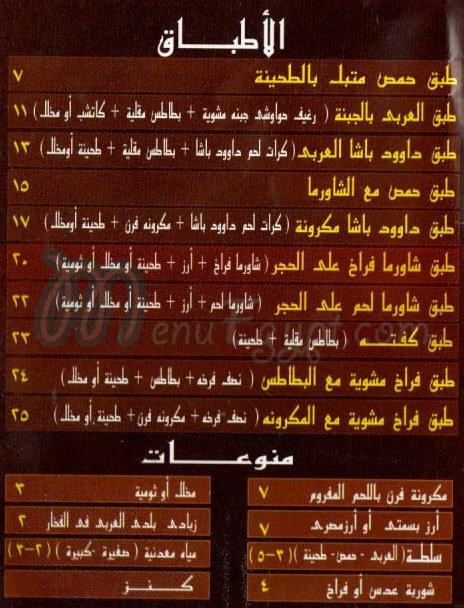 الأطباق
طبق حمص متبل بالطحينة ٧
طبق العربى بالجبنة ( رغيف حواوشى جبنه مشوية + بطاطس مقلية + كاتشب أو مخلل ) ١١
طبق داوود باشا العربى ( كرات لحم داوود باشا + بطاطس مقلية + طحينة أومخلل ) ١٣
طبق حمص مع الشاورما ١٥
طبق داوود باشا مكرونة ( كرات لحم داوود باشا + مكرونه فرن + طحينة أومخلل ) ١٧
طبق شاورما فراخ على الحجر ( شاورما فراخ + أرز + طحينة أو مخلل أو ثومية ) ٢٠
طبق شاورما لحم على الحجر ( شاورما لحم + أرز + طحينة أو مخلل أو ثومية ) ٢٢
طبق كفتـــه ( بطاطس مقلية + طحينة ) ٢٣
طبق فراخ مشوية مع البطاطس ( نصف فرخه + بطاطس + طحينة أو مخلل ) ٢٤
طبق فراخ مشوية مع المكرونه ( نصف فرخه + مكرونه فرن + طحينة أو مخلل ) ٢٥
منوعات
مكرونة فرن باللحم المفروم ٧
أرز بسمتى أو أرزمصرى ٧
سلطة ( العربى - حمص - طحينة ) ( ٣-٥ )
شوربة عدس أو فراخ ٤
مخلل أو ثومية ٣
زبادى بلدى العربى فى الفخار ٢
مياه معدنية ( صغيرة - كبيرة ) ( ٢-٣ )
كـــنـــز
MenuEgypt.com